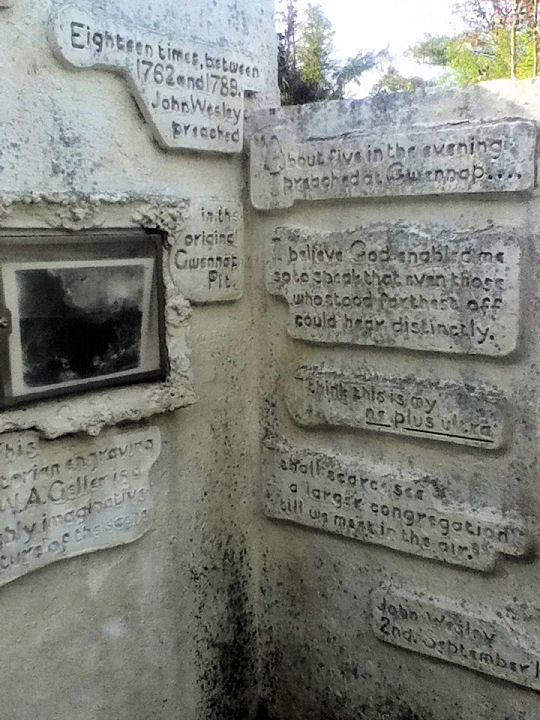 Eighteen times, between
1762 and 1789.
John Wesley
preached
in the
original
Gwennap
Pit.
engraving
W. A. Geller is a
imaginative
of the scene
About five in the evening
I preached at Gwennap....
I believe God enabled me
so to speak that even those
who stood farthest off
could hear distinctly.
think this is my
ne plus ultra.
shall scarce see
a larger congregation
till we meet in the air.
John Wesley
2nd. September